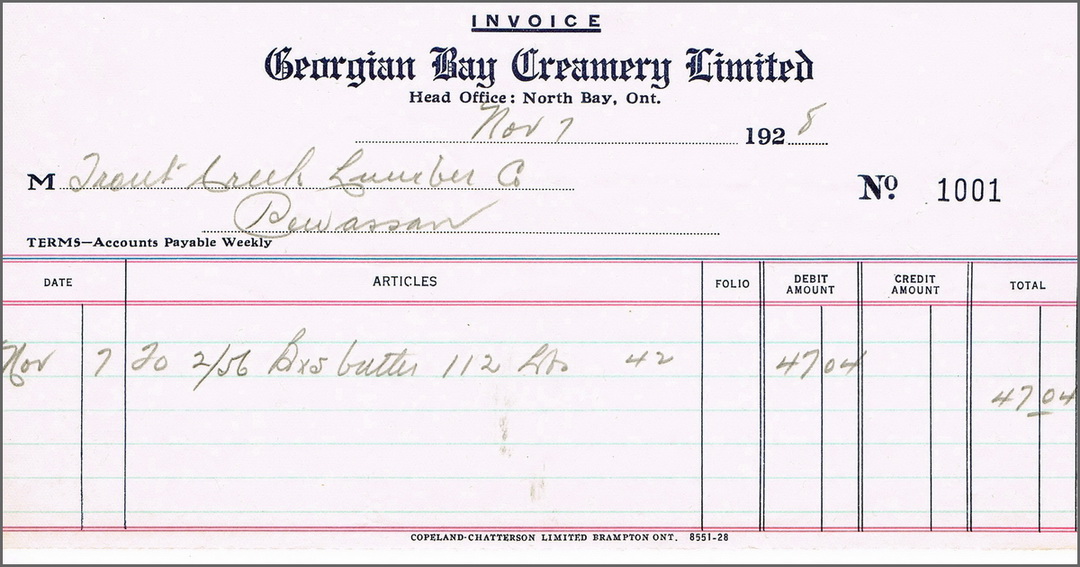 INVOICE
Georgian Bay Creamery Limited
Head Office: North Bay, Ont.
Nov 7 1928
M Trout Creek Lumber Co
Powassan
Nº 1001
TERMS—Accounts Payable Weekly
DATE ARTICLES FOLIO DEBIT AMOUNT CREDIT AMOUNT TOTAL
Nov 7 To 2/56 Bxs butter 112 Lbs 42 47 04
47 04
COPELAND-CHATTERSON LIMITED BRAMPTON ONT. 8551-28